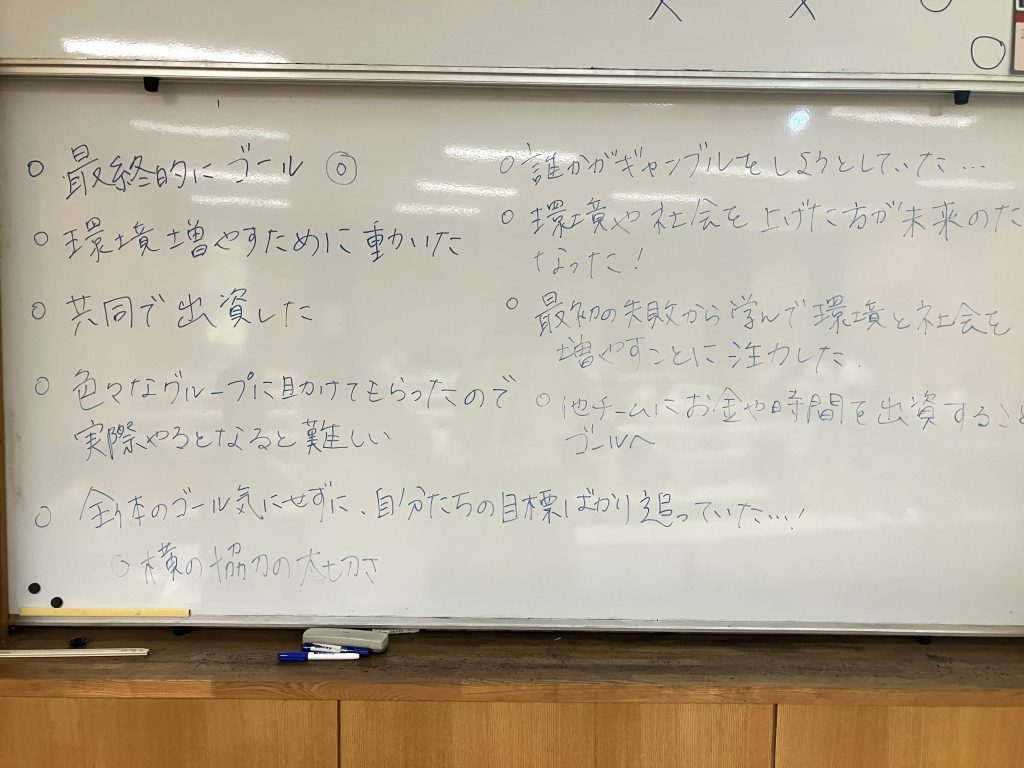 ○ 最終的にゴール ◎
○ 環境増やすために動いた
○ 共同で出資した
○ 色々なグループに助けてもらったので
実際やるとなると難しい
○ 全体のゴール気にせずに、自分たちの目標ばかり追っていた…!
○ 横の協力の大切さ
○ 誰かがギャンブルをしようとしていた…
○ 環境や社会を上げた方が未来のた
なった!
○ 最初の失敗から学んで環境と社会を
増やすことに注力した.
○ 他チームにお金や時間を出資すること
ゴールへ